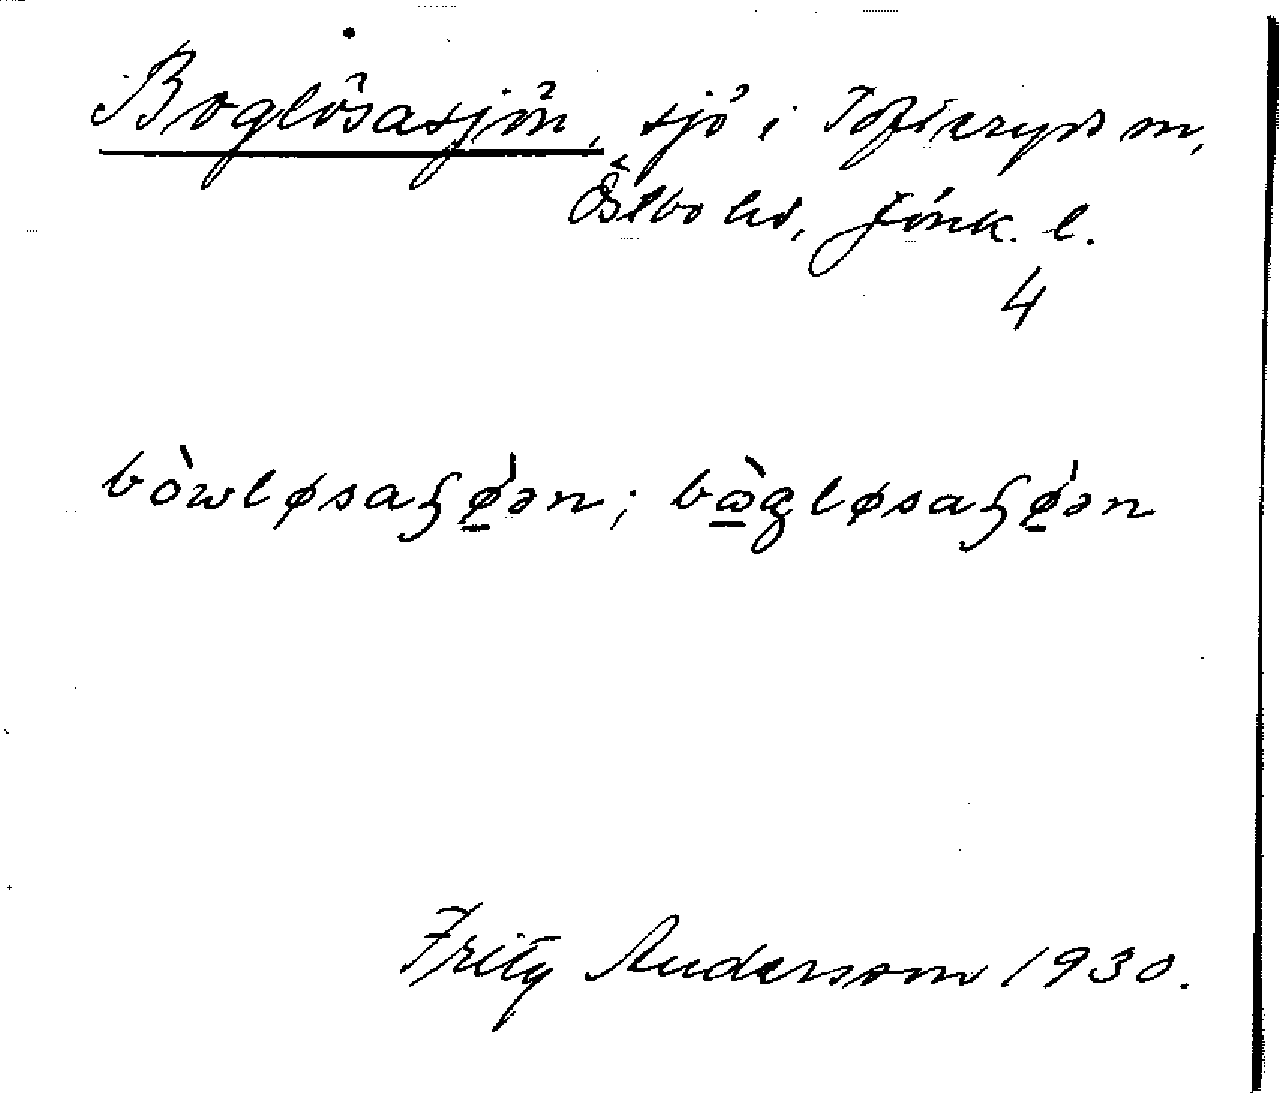 Boglösasjön, sjö i Tofteryds sn,
Östbo hd, Jönk. l.
4
bòwløsaʃǿ̱ən; bɷ̱̀gløsaʃǿ̱ən
Fritz Andersson 1930.